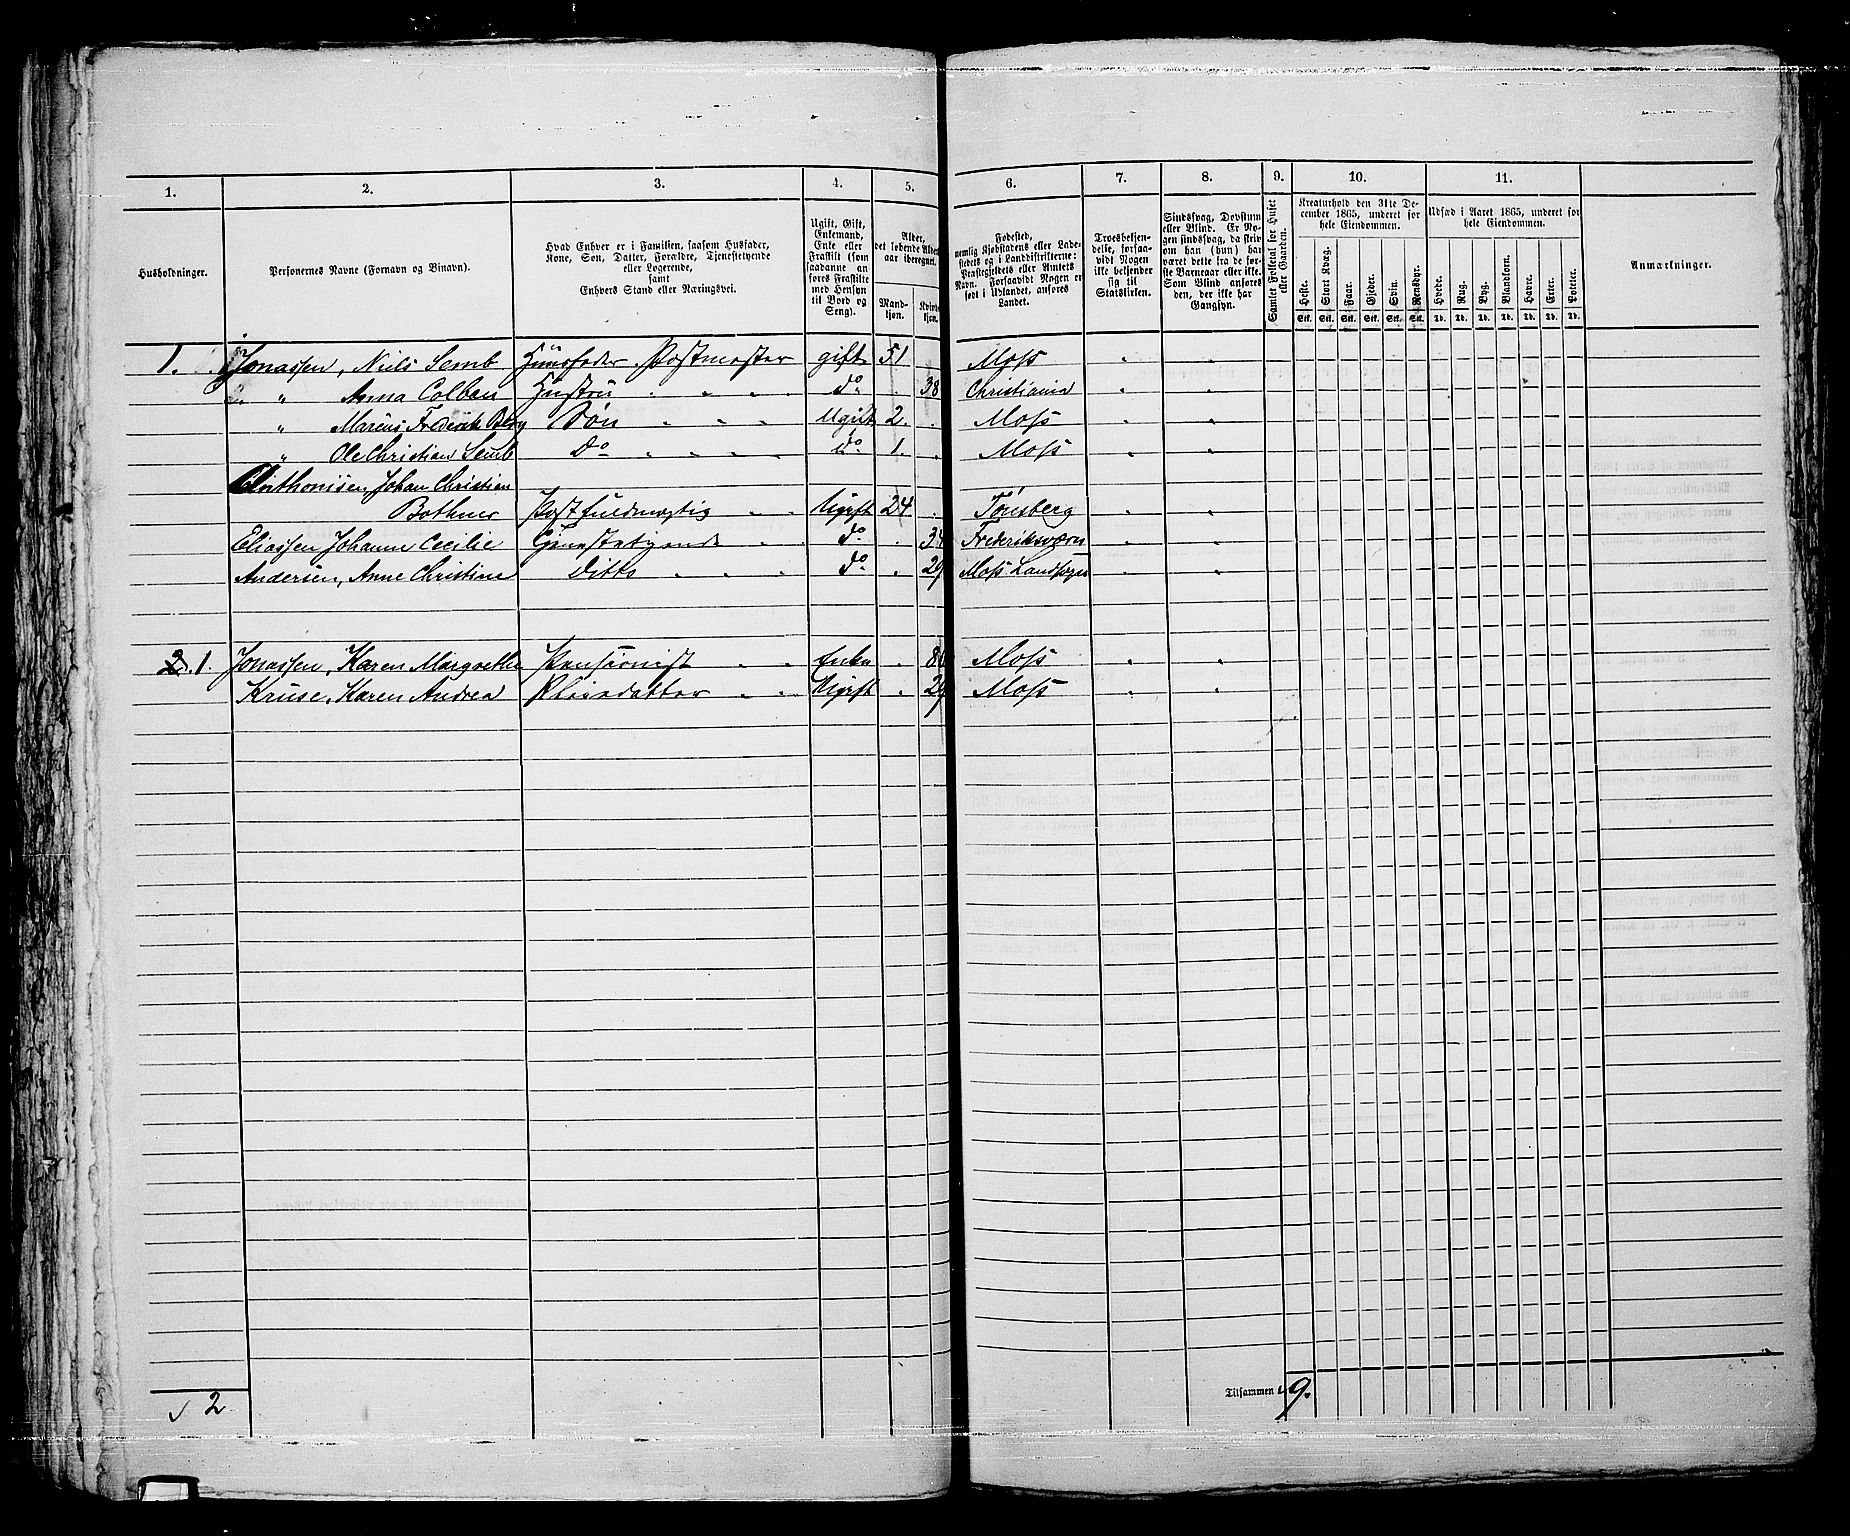 1. 2. 3. 4. 5. 6. 7. 8. 9. 10. 11.
Husholdninger.
Personernes Navne (Fornavn og Binavn).
Hvad Enhver er i Familien, saasom Husfader,
Kone, Søn, Datter, Forældre, Tjenestetyende
eller Logerende,
samt
Enhvers Stand eller Næringsvei.
Ugift, Gift,
Enkemand,
Enke eller
Fraskilt (som
saadanne an-
føres Fraskilte
med Hensyn
til Bord og
Seng).
Alder,
det løbende Alders-
aar iberegnet.
Mand-
kjøn.
Kvin
kjøn.
Fødested,
nemlig Kjøbstadens eller Lade-
stedets og i Landdistrikterne:
Præstegjeldets eller Amtets
Navn. Forsaavidt Nogen er
født i Udlandet, anføres
Landet.
Troesbekjen-
delse, forsaa-
vidt Nogen
ikke bekjender
sig til
Statskirken.
Sindssvag, Døvstum
eller Blind. Er No-
gen sindssvag, da skriv
om han (hun) har
været dette fra de før-
ste Barneaar eller ikke.
Som Blind anføres
den, der ikke har
Gangsyn.
Samlet Folketal for Huset
eller Gaarden.
Kreaturhold den 31te De-
cember 1865, underet for
hele Eiendommen.
Heste. Stort Kvæg. Faar. Gjeder. Svin. Rensdyr.
Stk. Stk. Stk. Stk. Stk. Stk.
Udsæd i Aaret 1865, underet for
hele Eiendommen.
Hvede. Rug. Byg. Blandkorn. Havre. Erter. Poteter.
Td. Td. Td. Td. Td. Td. Td.
Anmærkninger.
1. Jonassen, Niels Semb Huusfader. Postmester gift 51 Moss
" Anna Colban Hustru do 38 Christiania
" Marius Frederik Berg Søn Ugift 2. Moss
" Ole Christian Semb do do 1. Moss
Anthonisen, Johan Christian
Bothner Postfuldmægtig Ugift 24. Tønsberg
Eliassen Johanne Cecilie Tjenestetyende do Fredriksværn
Andersen, Anne Christine Ditto do 29 Moss Landsogn
2. 1. Jonassen, Karen Margrethe Pensionist Enke Moss
Kruse, Karen Andrea Pleiedatter Ugift 29 Moss
Tilsammen 9.
2